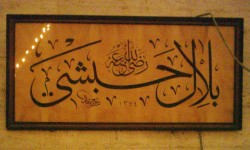 بلال حبشي
رضي الله عنه